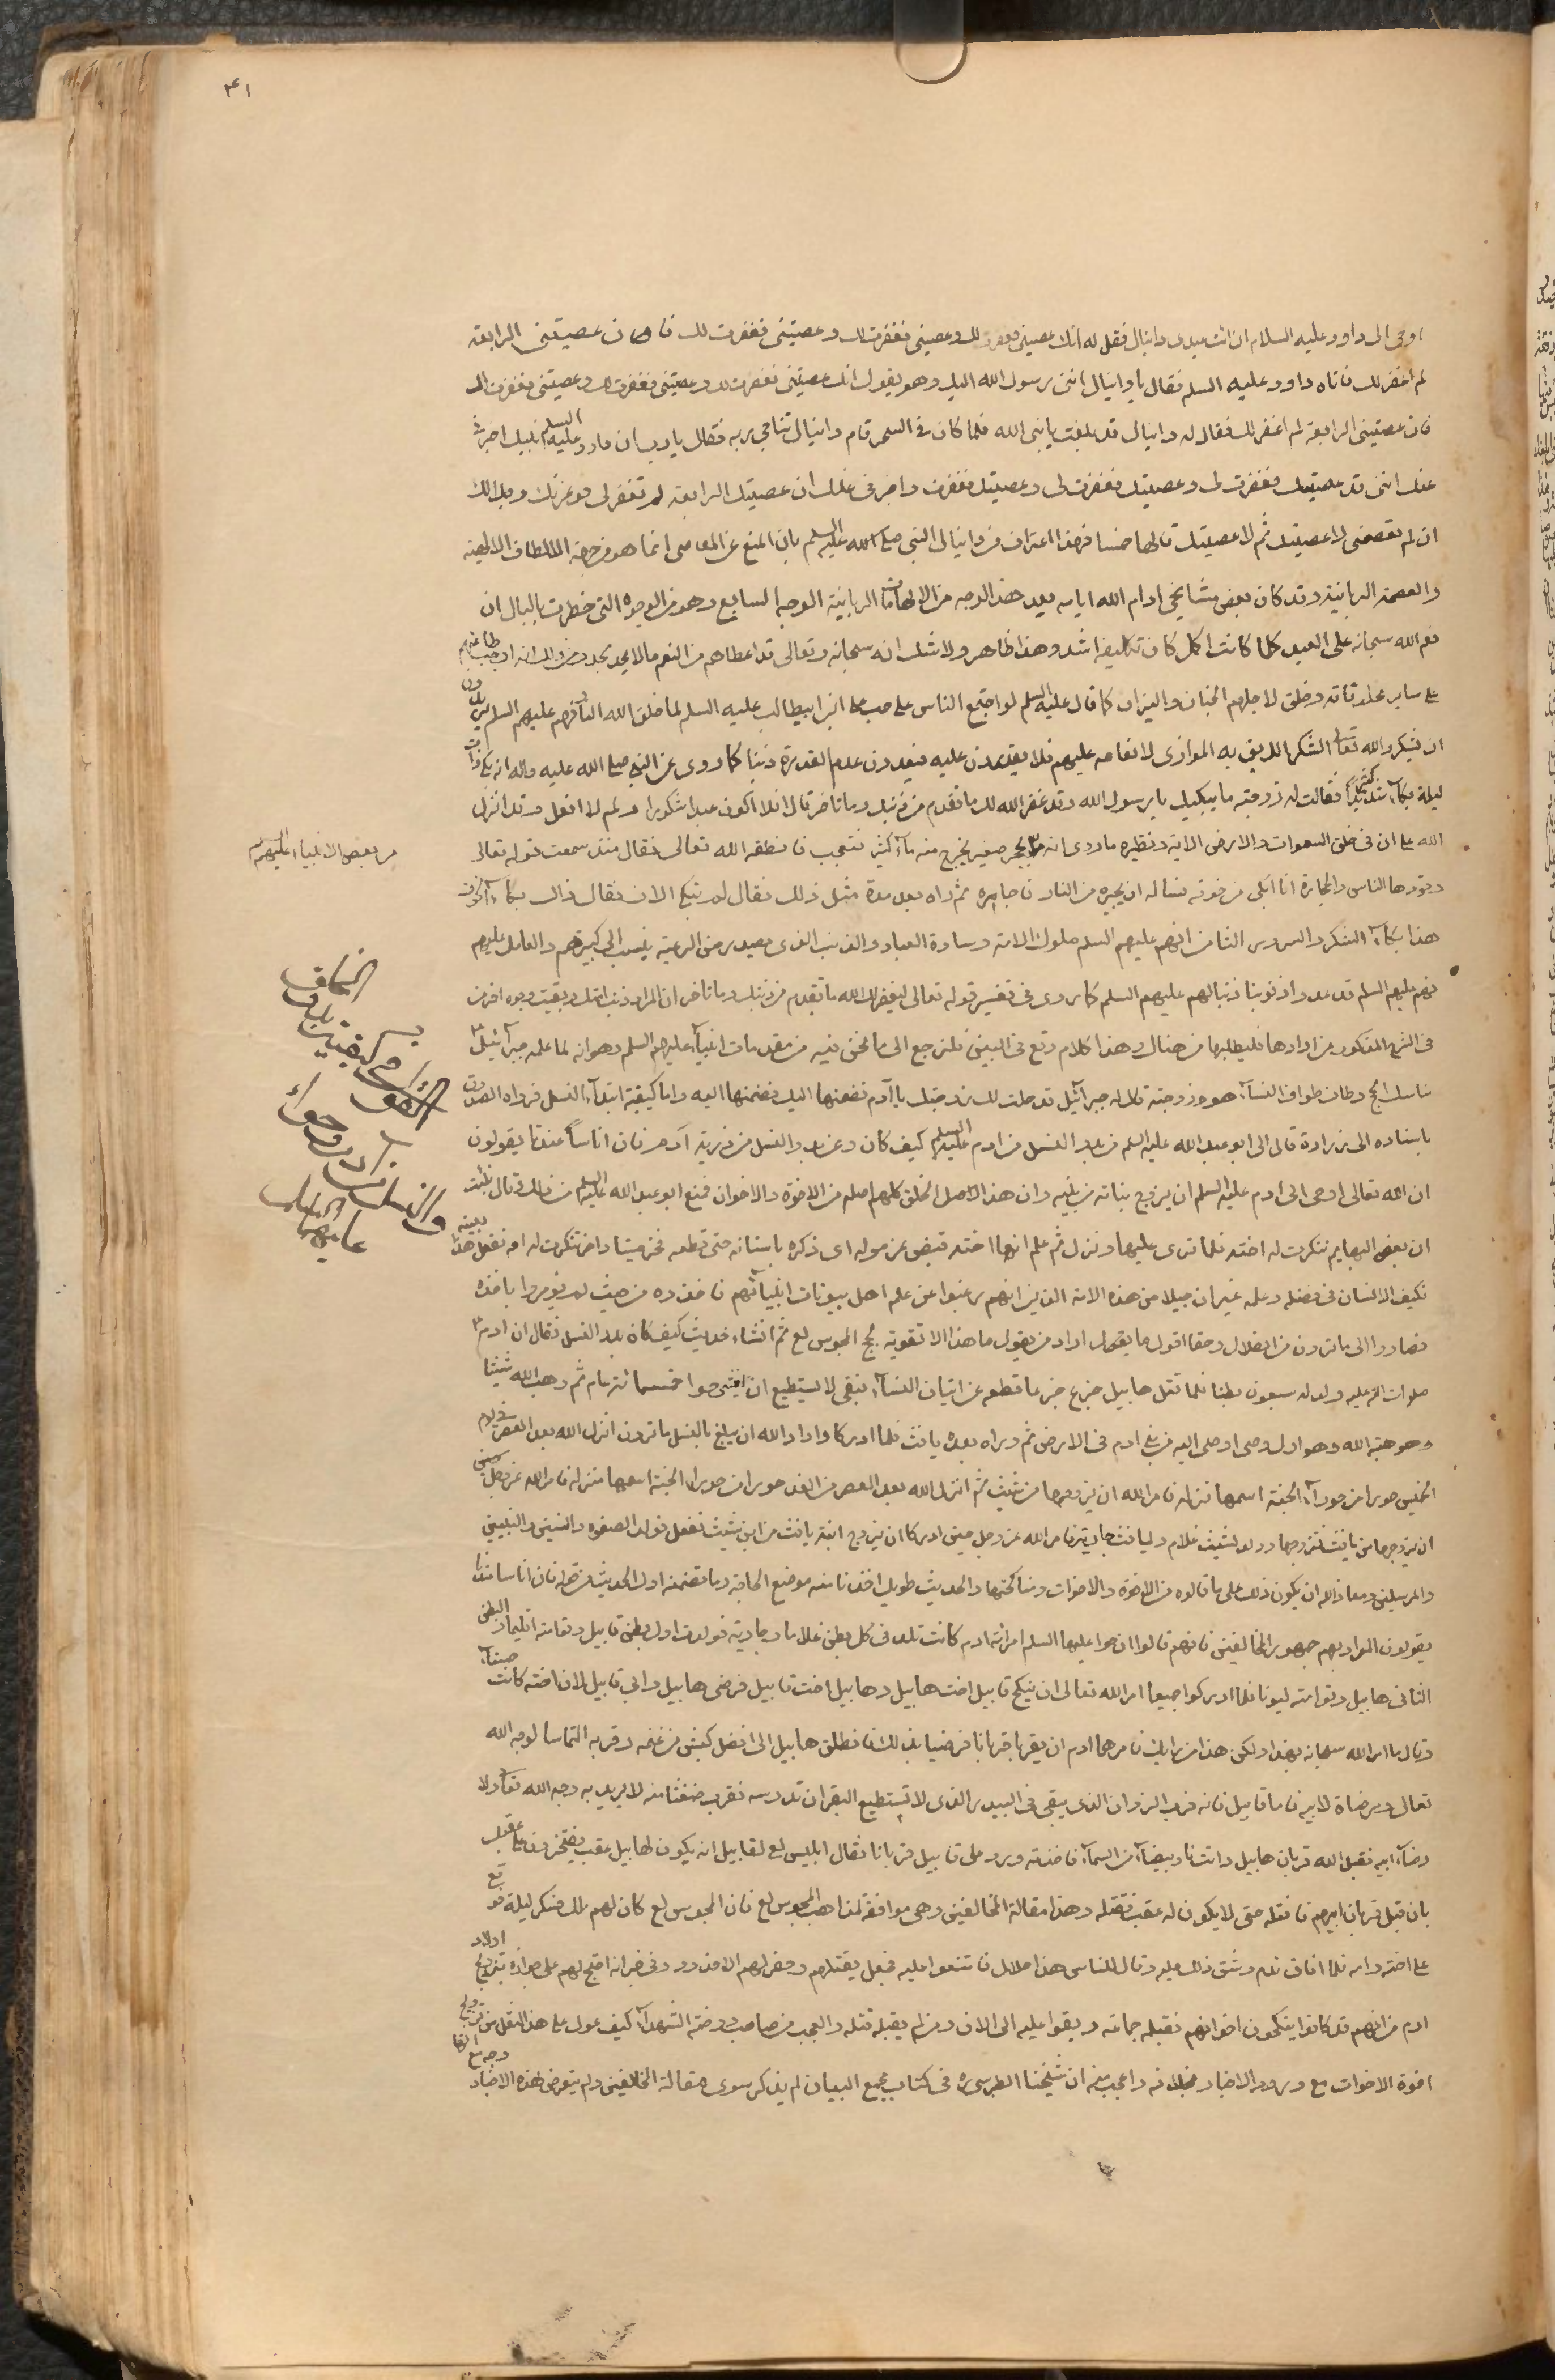 ۴۱
اوحى الى داود عليه السلام ان ائت عبدى دانيال فقل له انك عصيتنى فغفرت لك وعصيتنى فغفرت لك وعصيتنى فغفرت لك فان عصيتنى الرابعة
لم اغفر لك فاتاه داود عليه السلم فقال يا دانيال اننى رسول الله اليك وهو يقول انك عصيتنى فغفرت لك وعصيتنى فغفرت لك وعصيتنى فغفرت لك
فان عصيتنى الرابعة لم اغفر لك فقال له دانيال قد بلغت يا نبى الله فلما كان فى السحر قام دانيال تناجى ربه فقال يا رب ان داود عليه السلم نبيك اخبرنى
عنك اننى قد عصيتك فغفرت لى وعصيتك فغفرت لى وعصيتك فغفرت واخبرنى عنك ان عصيتك الرابعة لم تغفر لى فوعزتك وجلالك
ان لم تعصمنى لاعصيتك ثم لاعصيتك قالها خمسا فهذا اعتراف من دانيال النبى صلى الله عليه السلم بان المنع عن المعاصى انما هو من جهة الالطاف الالهية
والعصمة الربانية وقد كان بعض مشايخى ادام الله ايامه يعد هذا الوجه من الالهامات الربانية الوجه السابع وهو من الوجوه التى خطرت بالبال ان
نعم الله سبحانه على العبد كلما كانت اكمل كان تكليفه اشد وهذا ظاهر ولا شك انه سبحانه وتعالى قد اعطاهم من النعم ما لا يحد بحد ومن ذلك انه اوجب طاعتهم
على ساير مخلوقاته وخلق لاجلهم الجنان والنيران كما قال عليه السلم لو اجتمع الناس على حب على ابن ابيطالب عليه السلم لما خلق الله النار فهم عليهم السلم يريدون
ان يشكروا الله تعالى الشكر الذى يليق به الموازى لانعامه عليهم فلا يقدرون عليه فيعدون عدم القدرة ذنبا كما روى عن النبى صلى الله عليه واله انه بكى ذات
ليلة بكاء شديدا كثيرا فقالت له زوجته ما يبكيك يا رسول الله وقد غفر الله لك ما تقدم من ذنبك وما تاخر قال افلا اكون عبدا شكورا ولم لا افعل وقد انزل
الله على ان فى خلق السموات والارض الاية ونظيره ما روى انه مر بحجر صغير يخرج منه ماء كثير فتعجب فانطقه الله تعالى فقال منذ سمعت قوله تعالى
مر بعض الانبياء عليهم السلم
وقودها الناس والحجارة انا ابكى من خوفه فساله ان يجيره من النار فاجاره ثم راه بعد مدة مثل ذلك فقال لم تبكى الان فقال ذاك بكاء الخوف
هذا بكاء الشكر والسرور الثامن انهم عليهم السلم ملوك الامة وسادة العباد والذنب الذى يصدر من الرعية ينسب الى كبيرهم والعامل عليهم
فهم عليهم السلم قد عدوا ذنوبنا ذنبا لهم عليهم السلم كما روى فى تفسير قوله تعالى ليغفر لك الله ما تقدم من ذنبك وما تاخر ان المراد ذنب امتك وبقيت وجوه اخرى
فى الشرح المذكور من ارادها فليطلبها من هناك وهذا كلام وقع فى البين فلنرجع الى ما نحن فيه من مقدمات انبياء عليهم السلم وهو انه لما علمه جبرائيل
مناسك الحج وطاف طواف النسآء هو وزوجته قال له جبرائيل قد حلت لك زوجتك يا ادم فضمنها اليه واما كيفية ابتداء النسل فرواه الصدوق
باسناده الى زرارة قال الى ابو عبد الله عليه السلم من بدء النسل من ادم عليه السلم كيف كان وعن بدء النسل من ذرية آدم فان اناسا عندنا يقولون
ان الله تعالى اوحى الى ادم عليه السلم ان يزوج بناته من بنيه وان هذا الاصل الخلق كلهم اصله من الاخوة والاخوات فمنع ابو عبد الله عليه السلم من ذلك وقال نبئت
ان بعض البهايم تنكرت له اخته فلما نزى عليها ونزل ثم علم انها اخته قبض عن موله اى ذكره باسنانه حتى قطعه فخر ميتا واخر تنكرت له امه ففعل هذا بعينه
فكيف الانسان فى فضله وعلمه غير ان جيلا من هذه الامة الذين انهم رغبوا عن علم اهل بيوتات انبيائهم فاخذوه من حيث لم يؤمروا باخذه
فصاروا الى ما ترون من الضلال وحقا اقول ما يقول اراد من يقول ما هذا الا تقوية لحجج المجوس لع ثم انشاء يحدث كيف كان بدء النسل فقال ان ادم
صلوات الله عليه ولد له سبعون بطنا فلما قتل هابيل جزع جزعا قطعه عن اتيان النسآء فبقى لا يستطيع ان يغشى حوا خمسمائة عام ثم وهب الله شيثا
وهو هبة الله وهو اول وصى اوصى اليه من بنى ادم فى الارض ثم ولد له بعده يافث فلما ادركا واراد الله ان يبلغ بالنسل ما ترون انزل الله بعد العصر فى يوم
الخميس حورا من حوراء الجنة اسمها نزله فامر الله ان يزوجها من شيث ثم انزل الله بعد العصر من الغد حورا من حوراء الجنة اسمها منزله فامر الله عز وجل
ان يزوجها من يافث فتزوجها وولد لشيث غلام وليافث جارية فامر الله عز وجل حين ادركا ان يزوج ابنة يافث من ابن شيث ففعل فولد الصفوة والنبيين
والمرسلين ومعاذ الله ان يكون ذلك على ما قالوه من الاخوة والاخوات ومناكحتها والحديث طويل اخذنا منه موضع الحاجة وما تضمنه اول الحديث من قوله فان اناسا عندنا
يقولون المراد بهم جمهور المخالفين فانهم قالوا ان حوا عليها السلم امراة ادم كانت تلد فى كل بطن غلاما وجارية فولدت اول بطن قابيل وتوامته اقليما والبطن
الثانى هابيل وتوامته ليوذا فلما ادركوا جميعا امر الله تعالى ان ينكح قابيل اخت هابيل وهابيل اخت قابيل فرضى هابيل وابى قابيل لان اخته كانت حسنآء
وقال ما امر الله سبحانه بهذا ولكن هذا من رايك فامرهما ادم ان يقربا قربانا فرضيا بذلك فانطلق هابيل الى افضل كبش من غنمه وقربه التماسا لوجه الله
تعالى ومرضاة لابيه فاما قابيل فانه قرب الزوان الذى يبقى فى البيدر الذى لا تستطيع البقر ان تدوسه فقرب ضغثا منه لا يريد به وجه الله تعالى ولا
رضآء ابيه فقبل الله قربان هابيل واتت نار بيضاء من السمآء فاخذته ورد على قابيل قربانا فقال ابليس لع لقابيل انه يكون لهابيل عقب يفتخرون على عقبك
بان قبل قربان ابيهم فاقتله حتى لا يكون له عقب فقتله وهذا مقالة المخالفين وهى موافقة لمذاهب المجوس لع فان المجوس لع كان لهم ملك فسكر ليلة فوقع
على اخته وامه فلما افاق ندم وشق ذلك عليه وقال للناس هذا حلال فامتنعوا عليه فجعل يقتلهم وحفر لهم الاخدود وفى خبر انه احتج لهم على جوازه بتزويج اولاد
ادم من انهم قد كانوا ينكحون اخواتهم فقبله جماعة وبقوا عليه الى الان ومن لم يقبله قتله والعجب من صاحب روضة الشهدآء كيف عول على هذا النقل من تزويج
اخوة الاخوات مع ورود الاخبار بخلافه واعجب منه ان شيخنا الطبرسى ره فى كتاب مجمع البيان لم يذكر سوى مقالة المخالفين ولم يتعرض لهذه الاخبار